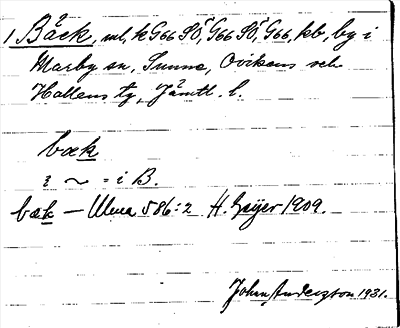 1 Bäck, ml, k G66 SÖ, G66 SÖ, G66, kb, by i
Marby sn, Sunne, Ovikens och
Hallens tg, Jämtl. l.
bæk
i ~ = i B.
bæk — Ulma 586:2 H. Geijer 1909.
John Anderzson 1931.